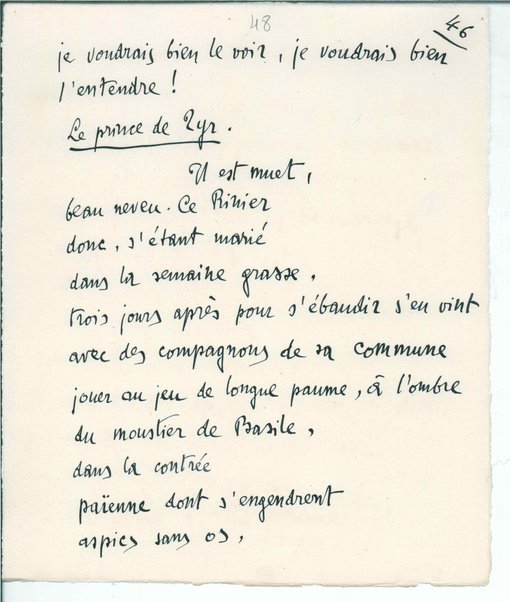 48
46
je voudrais bien le voir, je voudrais bien
l'entendre !
Le prince de Tyr.
Il est muet,
beau neveu. Ce Rinier
donc, s'étant marié
dans la semaine grasse,
trois jours après pour s'ébaudir s'en vint
avec des compagnons de sa commune
jouer au jeu de longue paume, à l'ombre
du moustier de Basile,
dans la contrée
païenne dont s'engendrent
aspics sans os,